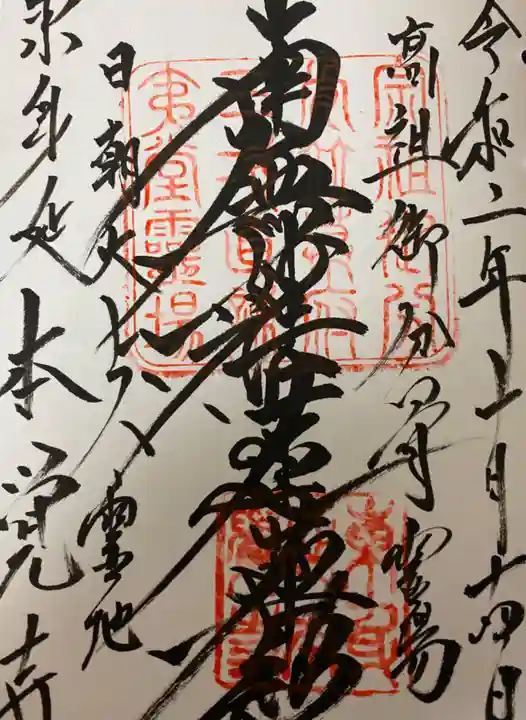 令和二年十一月十四日
高祖御分骨霊場
南無妙法蓮華経
日朝大上人霊地
東身延本覚寺
夷堂靈場